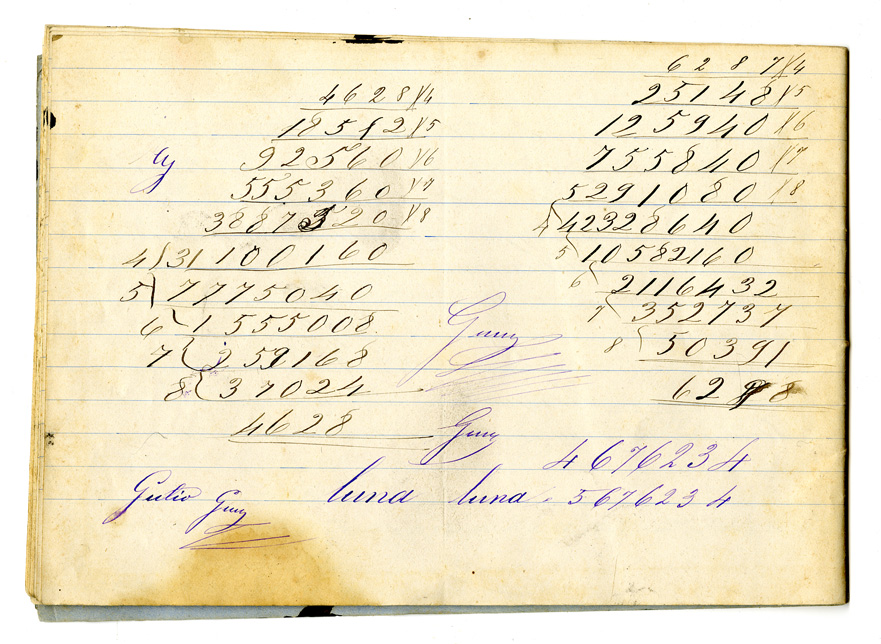 4628)(4
18512)(5
92560)(6
555360)(7
3887520)(8
4)31100160
5)7775040
6)1555008
7)259168
8)37024
4628
6287)(4
25148)(5
125940)(6
755840)(7
5291080)(8
4)42328640
5)10582160
6)2116432
7)352737
8)50391
62 8
4676234
luna luna 5676234